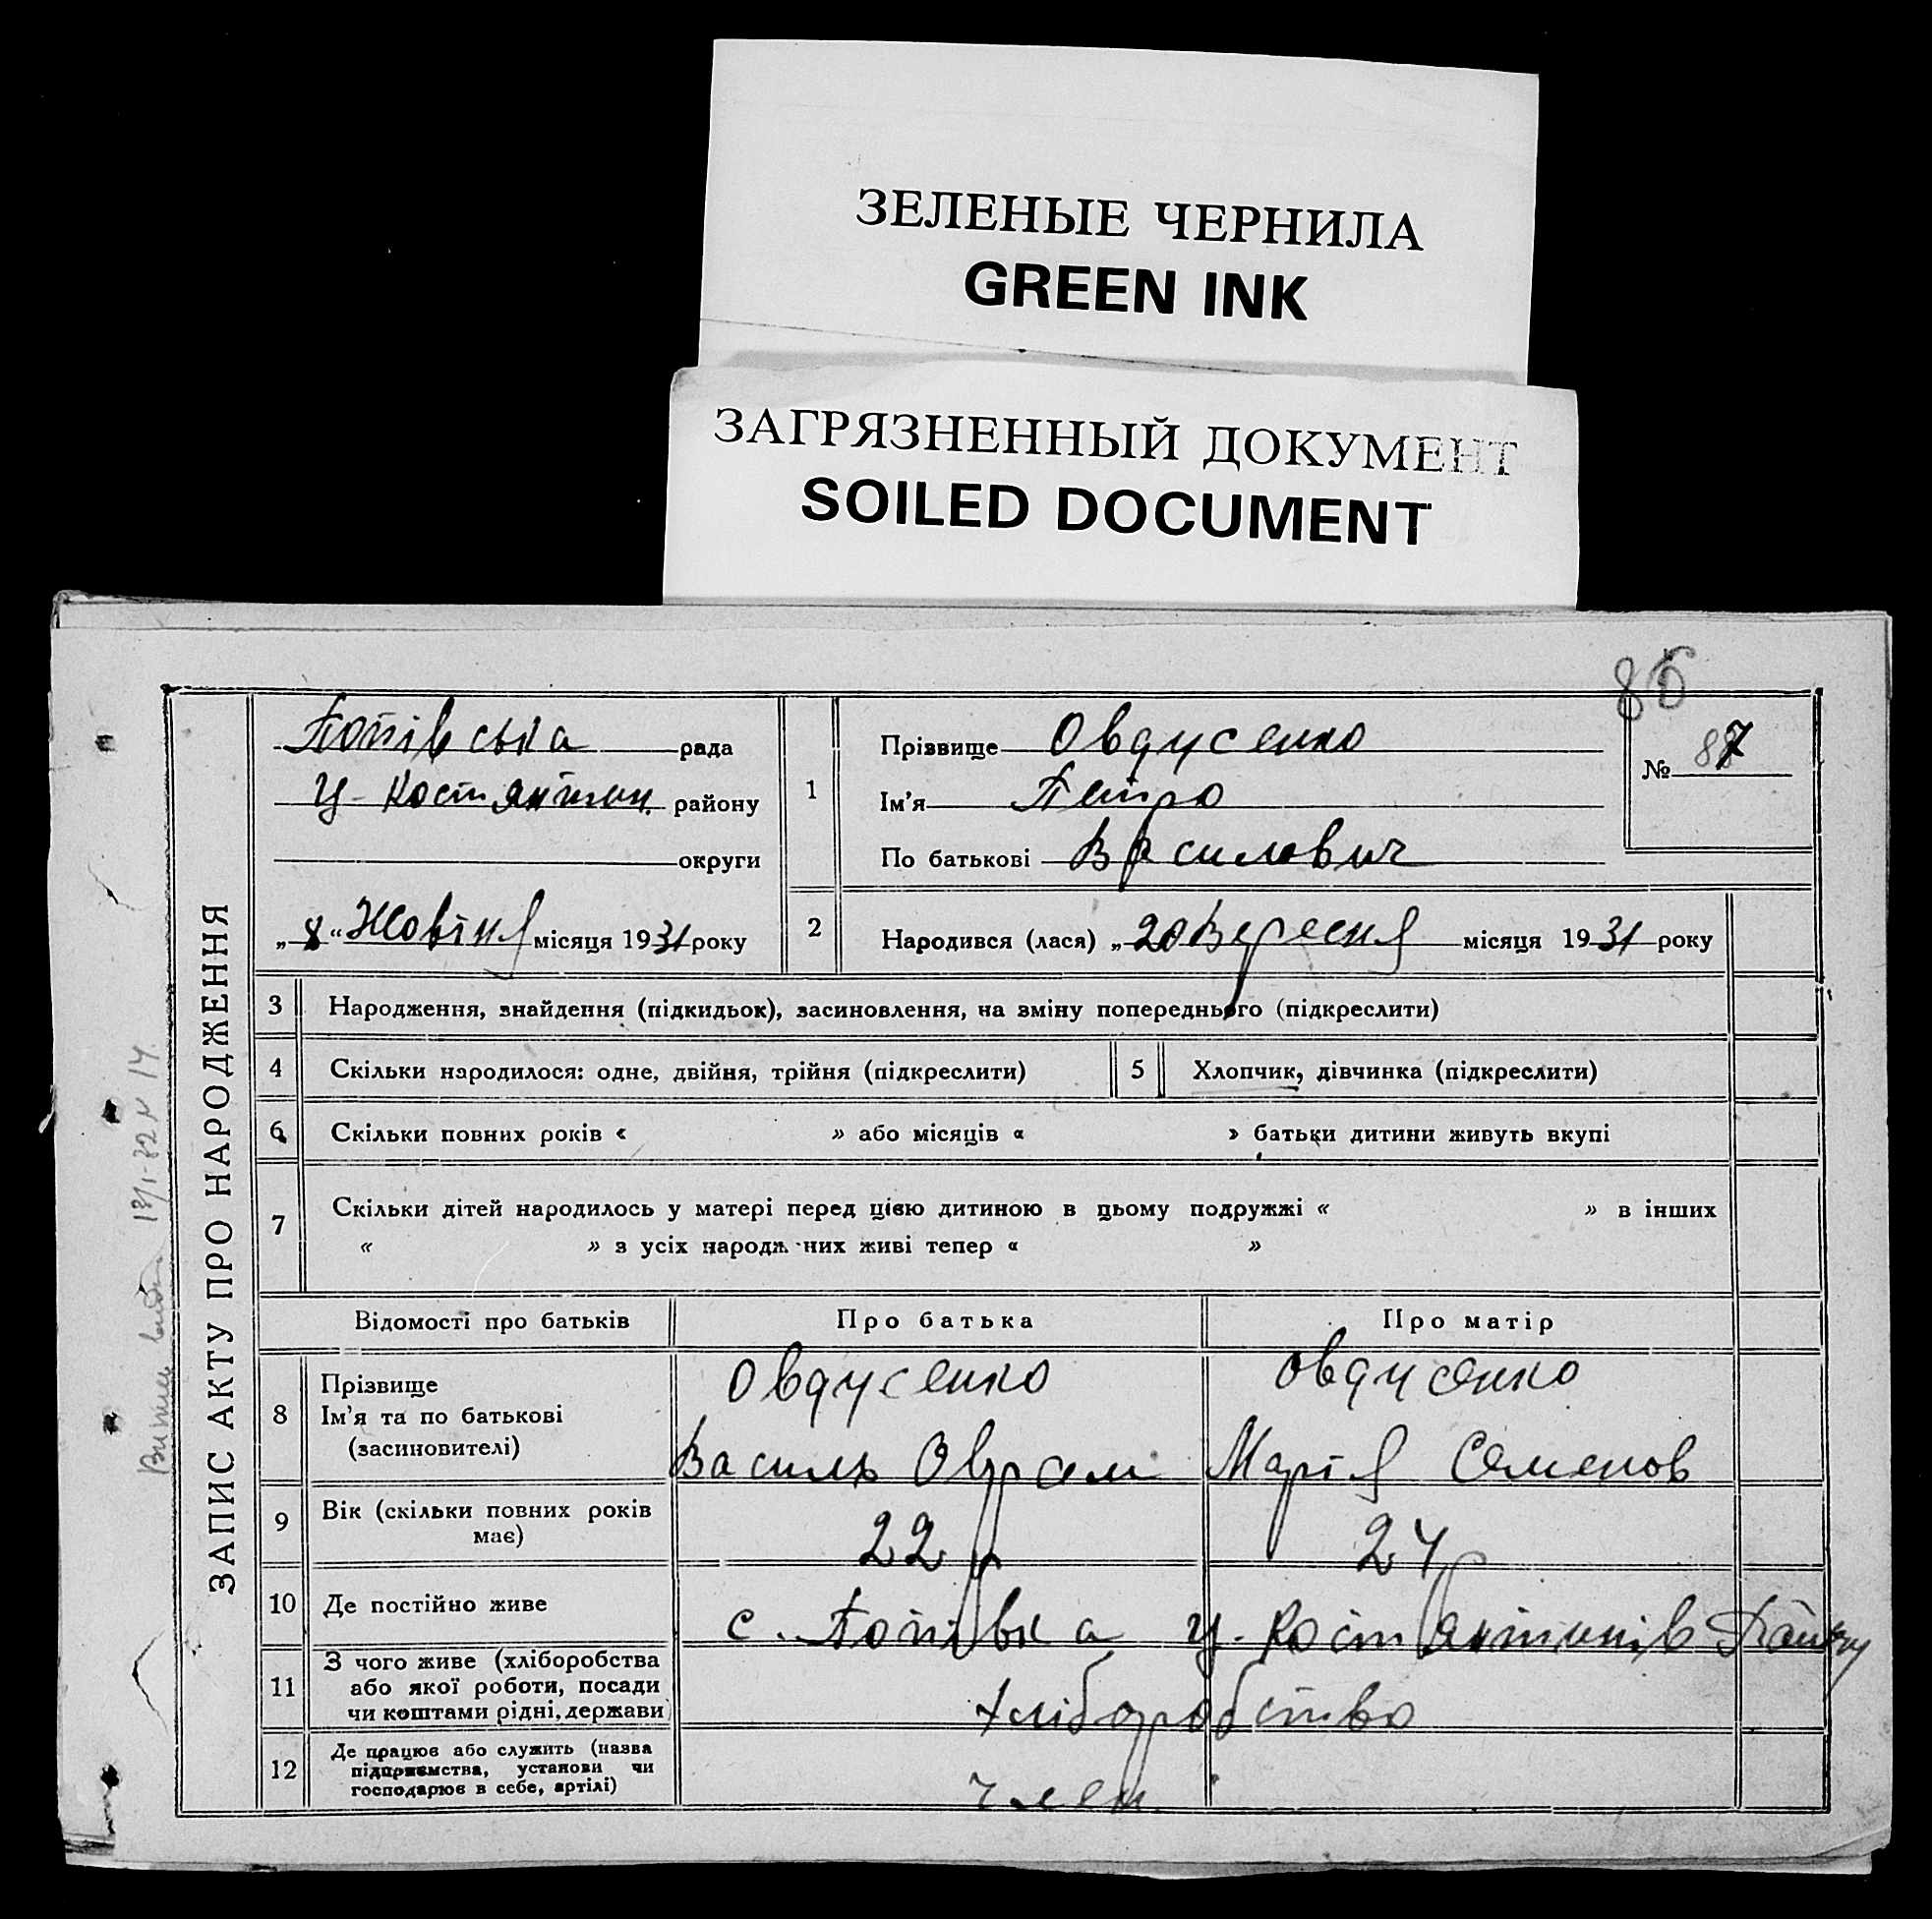 ЗЕЛЕНЫЕ ЧЕРНИЛА
GREEN INK
ЗАГРЯЗНЕННЫЙ ДОКУМЕНТ
SOILED DOCUMENT
86
ЗАПИС АКТУ ПРО НАРОДЖЕННЯ
Попівська рада
Ц-Костянтин. району
округи
„8“ Жовтня місяця 1931 року
1
Прізвище Овдусенко
Ім'я Петро
По батькові Василович
№ 87
2 Народився (лася) „20 Вересня місяця 1931 року
3 Народження, знайдення (підкидьок), засиновлення, на зміну попереднього (підкреслити)
4 Скільки народилося: одне, двійня, трійня (підкреслити) 5 Хлопчик, дівчинка (підкреслити)
6 Скільки повних років « » або місяців « » батьки дитини живуть вкупі
7 Скільки дітей народилось у матері перед цією дитиною в цьому подружжі « » в інших
« » з усіх народж них живі тепер « »
Відомості про батьків Про батька Про матір
8 Прізвище Овдусенко Овдусенко
Ім'я та по батькові
(засиновителі) Василь Оврам Марія Семенов
9 Вік (скільки повних років
має) 22 24
10 Де постійно живе с. Попівка Ц-Костянтинів Району
11 З чого живе (хліборобства
або якої роботи, посади
чи коштами рідні, держави) хліборобство
12 Де працює або служить (назва
підприємства, установи чи
господарює в себе, артілі) член